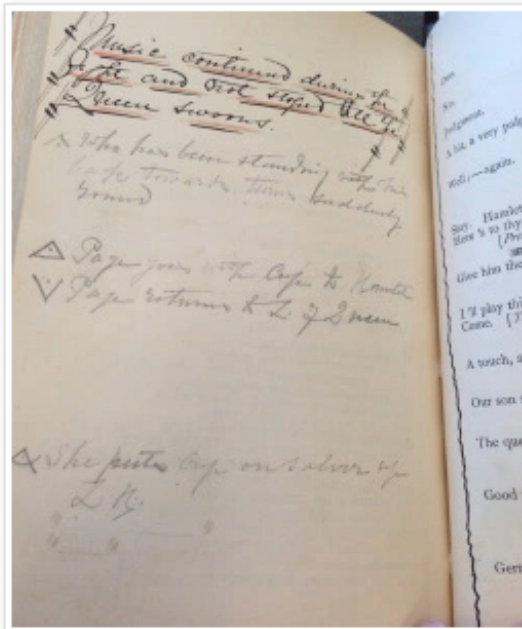 Music continued during the
fight and not stoped till the
Queen swoons.
who has been standing with his
back towards, turns suddenly
round
Page goes with Cup to Hamlet
Page returns to L of Queen
She puts cup on salver of
Judgment.
A hit, a very palp
Well;—again.
Stay. Hamlet
Here's to thy
Give him the
I'll play thi
Come.
A touch, a
Our son
The que
Good
Gert